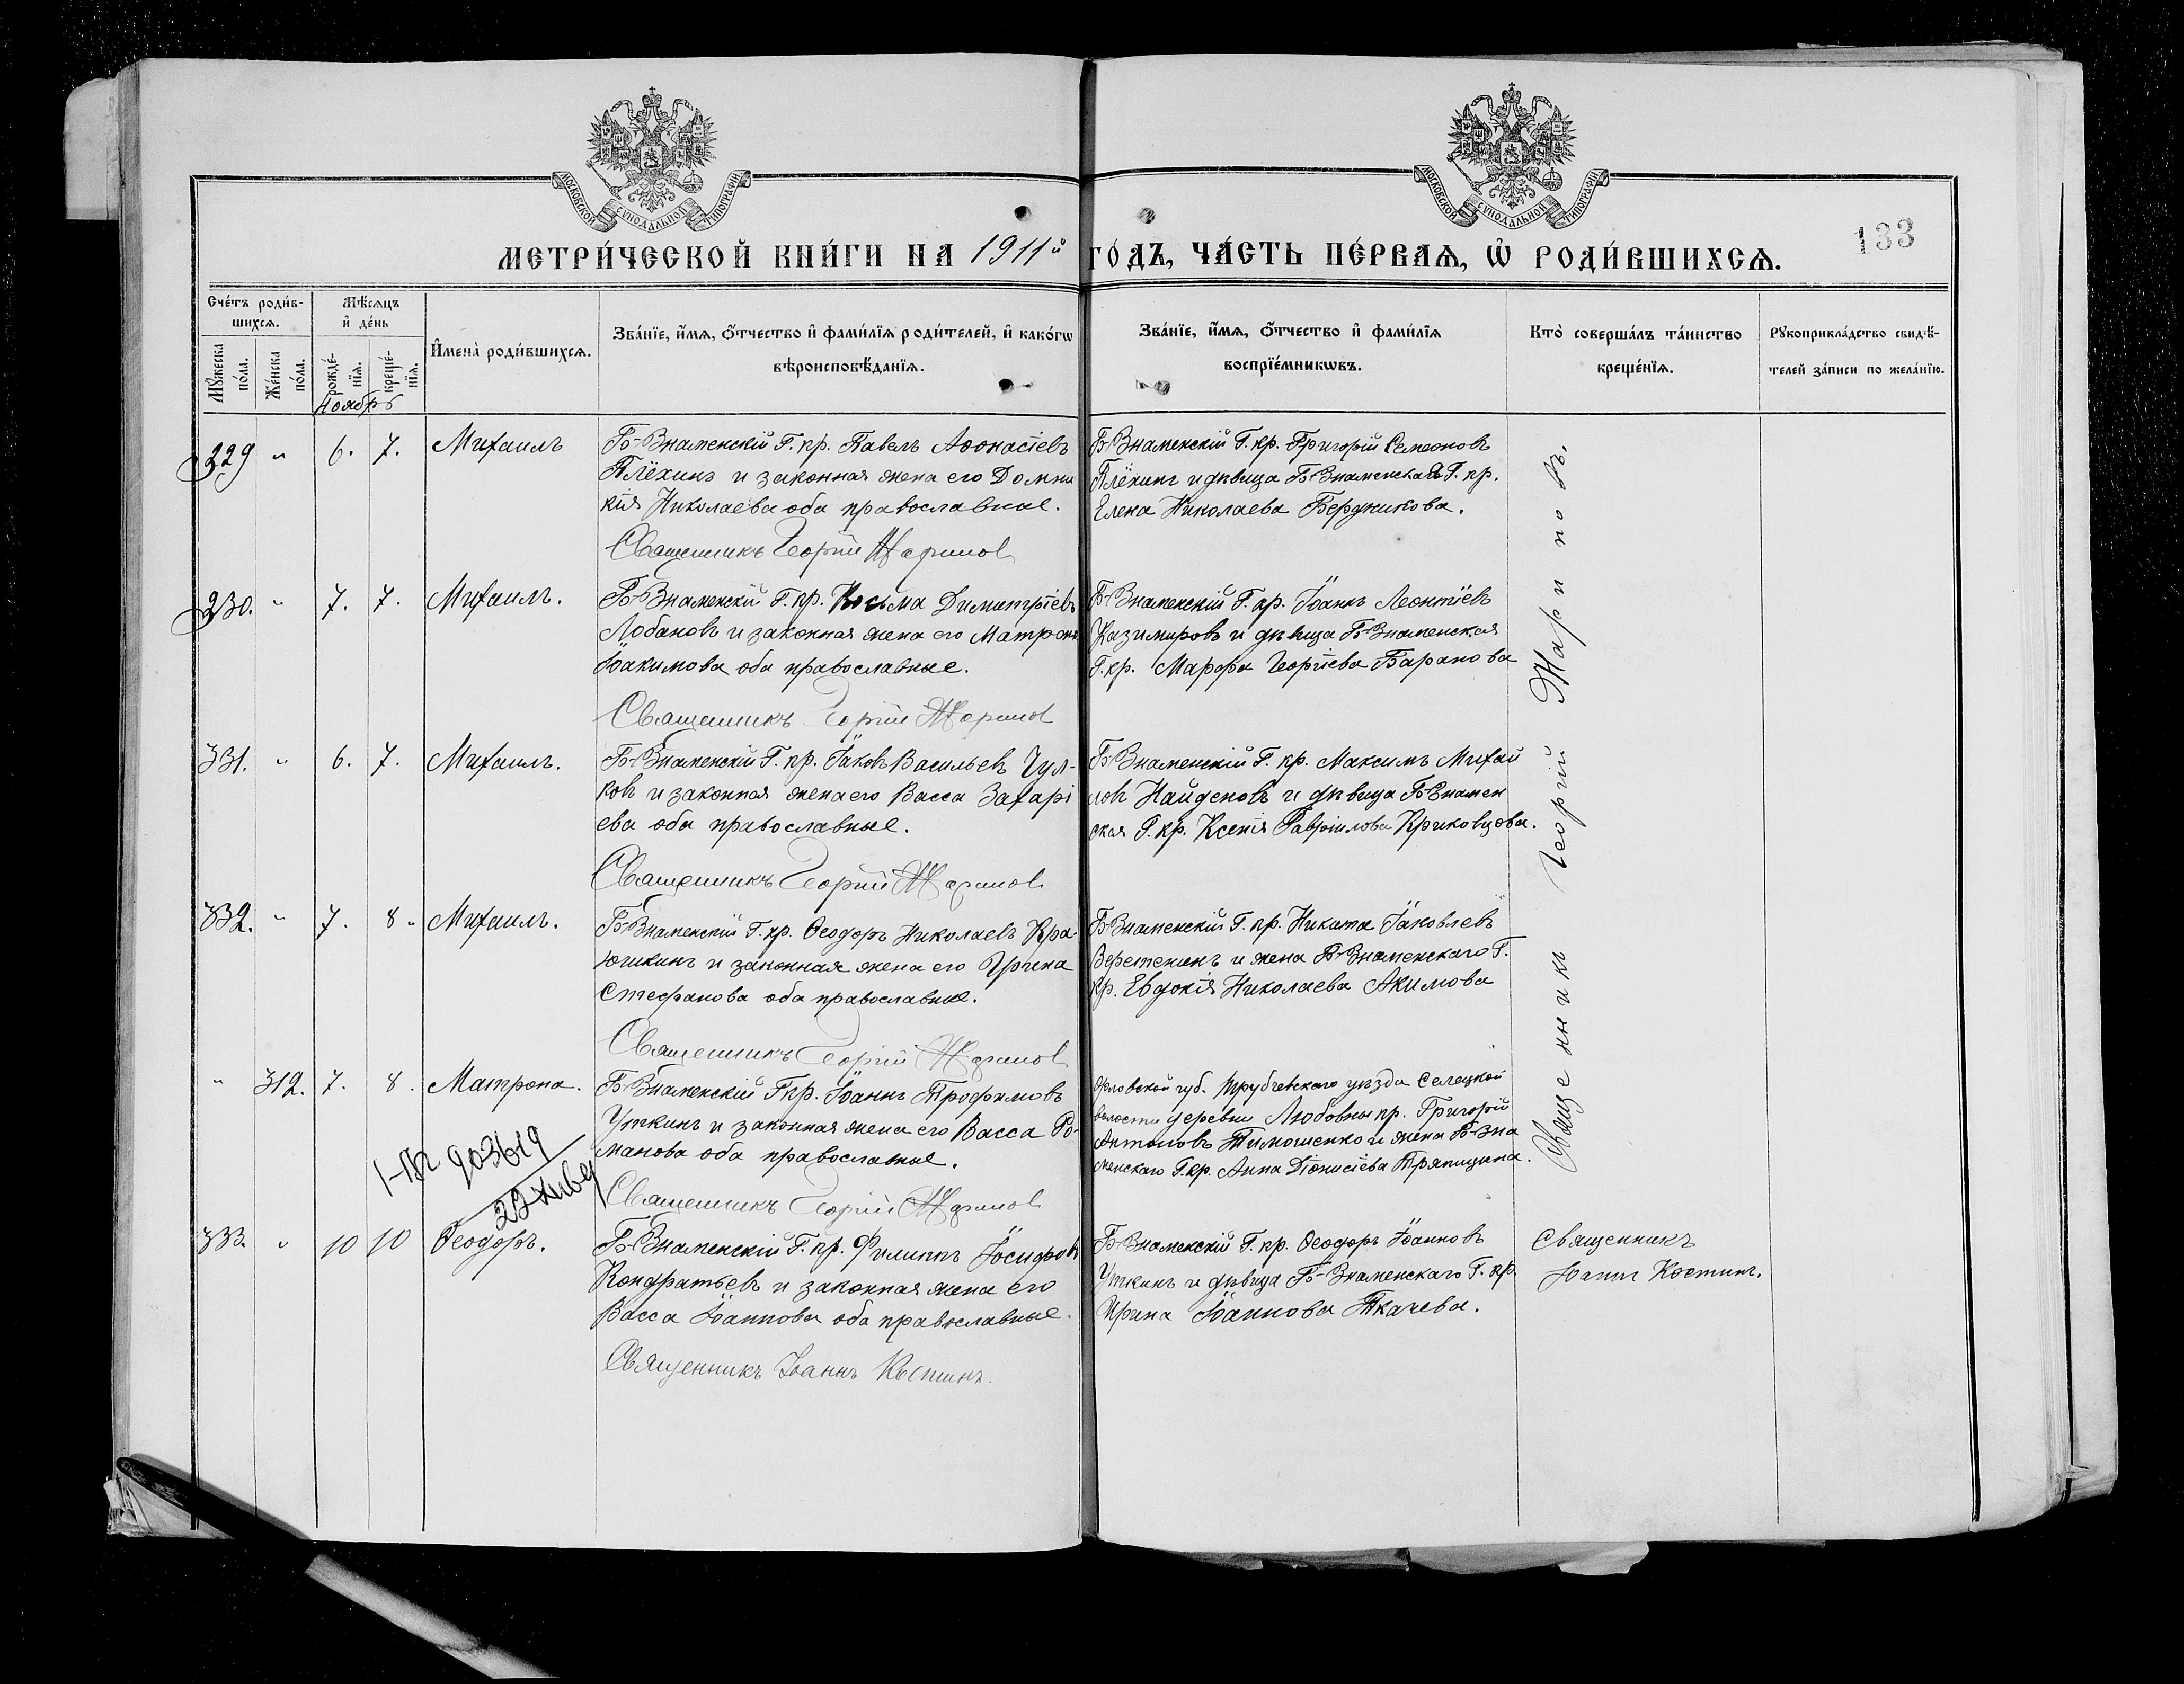 МОСКОВСКОЙ СѴНОДАЛЬНОЙ ТИПОГРАФІИ
МОСКОВСКОЙ СѴНОДАЛЬНОЙ ТИПОГРАФІИ
МЕТРИ́ЧЕСКОЙ КНИ́ГИ НА 1911й ГО́ДЪ, ЧА́СТЬ ПЕ́РВАѦ, Ѡ҆ РОДИ́ВШИХСѦ.
133
Сче́тъ роди́в-
шихсѧ.
Мꙋ́жеска по́ла.
Же́нска по́ла.
Мѣ́сѧцъ
и҆ де́нь
рожде́-
нїѧ.
креще́-
нїѧ.
И҆мена̀ роди́вшихсѧ.
Зва́нїе, и҆́мѧ, ѻ҆́тчество и҆ фами́лїѧ роди́телей, и҆ како́гѡ
вѣроисповѣ́данїѧ.
Зва́нїе, и҆́мѧ, ѻ҆́тчество и҆ фами́лїѧ
воспрїе́мникѡвъ.
Кто̀ соверша́лъ та́инство
креще́нїѧ.
Рꙋкоприкла́дство свидѣ́-
телей за́писи по жела́нїю.
Ноябрь
329 " 6. 7. Михаилъ
Б-Знаменскій Г. кр. Павелъ Аѳонасіевъ
Плёхинъ и законная жена его Домни
кія Николаева оба православные.
Священникъ Георгій Жариновъ
Б-Знаменскій Г. кр. Григорій Семеоновъ
Плёхинъ и дѣвица Б-Знаменская Г. кр.
Елена Николаева Бердникова.
330. " 7. 7. Михаилъ.
Б-Знаменскій Г. кр. Косьма Димитріевъ
Лобановъ и законная жена его Матрона
Іоакимова оба православные.
Священникъ Георгій Жариновъ
Б-Знаменскій Г. кр. Іоаннъ Леонтіевъ
Казимировъ и дѣвица Б-Знаменская
Г. кр. Марфа Георгіева Баранова
331. " 6. 7. Михаилъ.
Б-Знаменскій Г. кр. Іаковъ Васильевъ Чул-
ковъ и законная жена его Васса Захарі
ева оба православные.
Священникъ Георгій Жариновъ
Б-Знаменскій Г. кр. Максимъ Михаи
ловъ Найденовъ и дѣвица Б-Знамен
ская Г. кр. Ксенія Гавріилова Криковцова.
332. " 7. 8. Михаилъ.
Б-Знаменскій Г. кр. Ѳеодоръ Николаевъ Кра-
юшкинъ и законная жена его Ирина
Стефанова оба православные.
Священникъ Георгій Жариновъ
Б-Знаменскій Г. кр. Никита Іаковлевъ
Веретенинъ и жена Б-Знаменскаго Г.
кр. Евдокія Николаева Акимова
" 312. 7. 8. Матрона.
Б-Знаменскій Г. кр. Іоаннъ Трофимовъ
Уткинъ и законная жена его Васса Ро-
манова оба православные.
Священникъ Георгій Жариновъ
Орловской губ. Трубчевскаго уѣзда Селецкой
волости деревни Любовны кр. Григорій
Антоновъ Тимошенко и жена Б-Зна
менскаго Г. кр. Анна Діонисіева Тряпицына.
903619
333. " 10 10 Ѳеодоръ.
Б-Знаменскій Г. кр. Филиппъ Іосифовъ
Кондратьевъ и законная жена его
Васса Іоаннова оба православные.
Священникъ Іоаннъ Костинъ.
Б-Знаменскій Г. кр. Ѳеодоръ Іоанновъ
Уткинъ и дѣвица Б-Знаменскаго Г. кр.
Ирина Іоаннова Ткачева.
Священникъ Георгій Жариновъ.
Священникъ
Іоаннъ Костинъ.